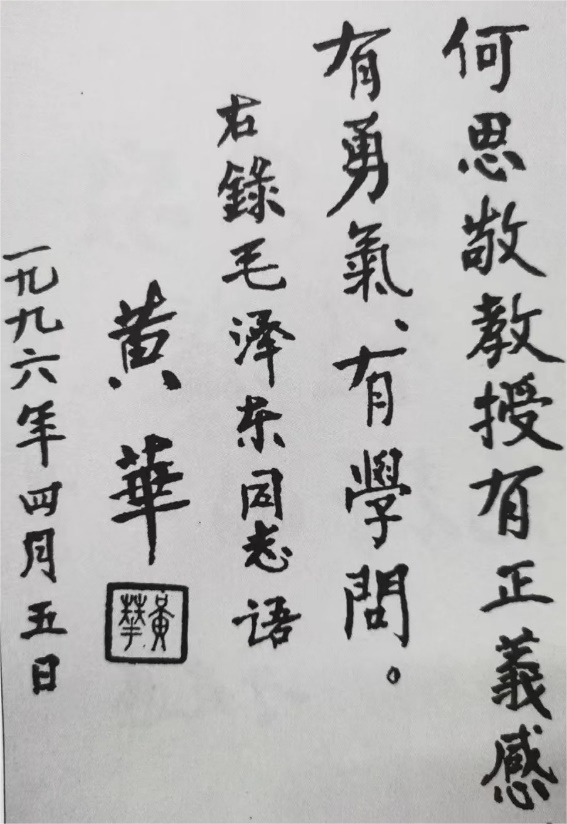 何思敬教授有正義感
有勇氣、有學問。
右錄毛泽东同志语
黄華
黃華
一九九六年四月五日